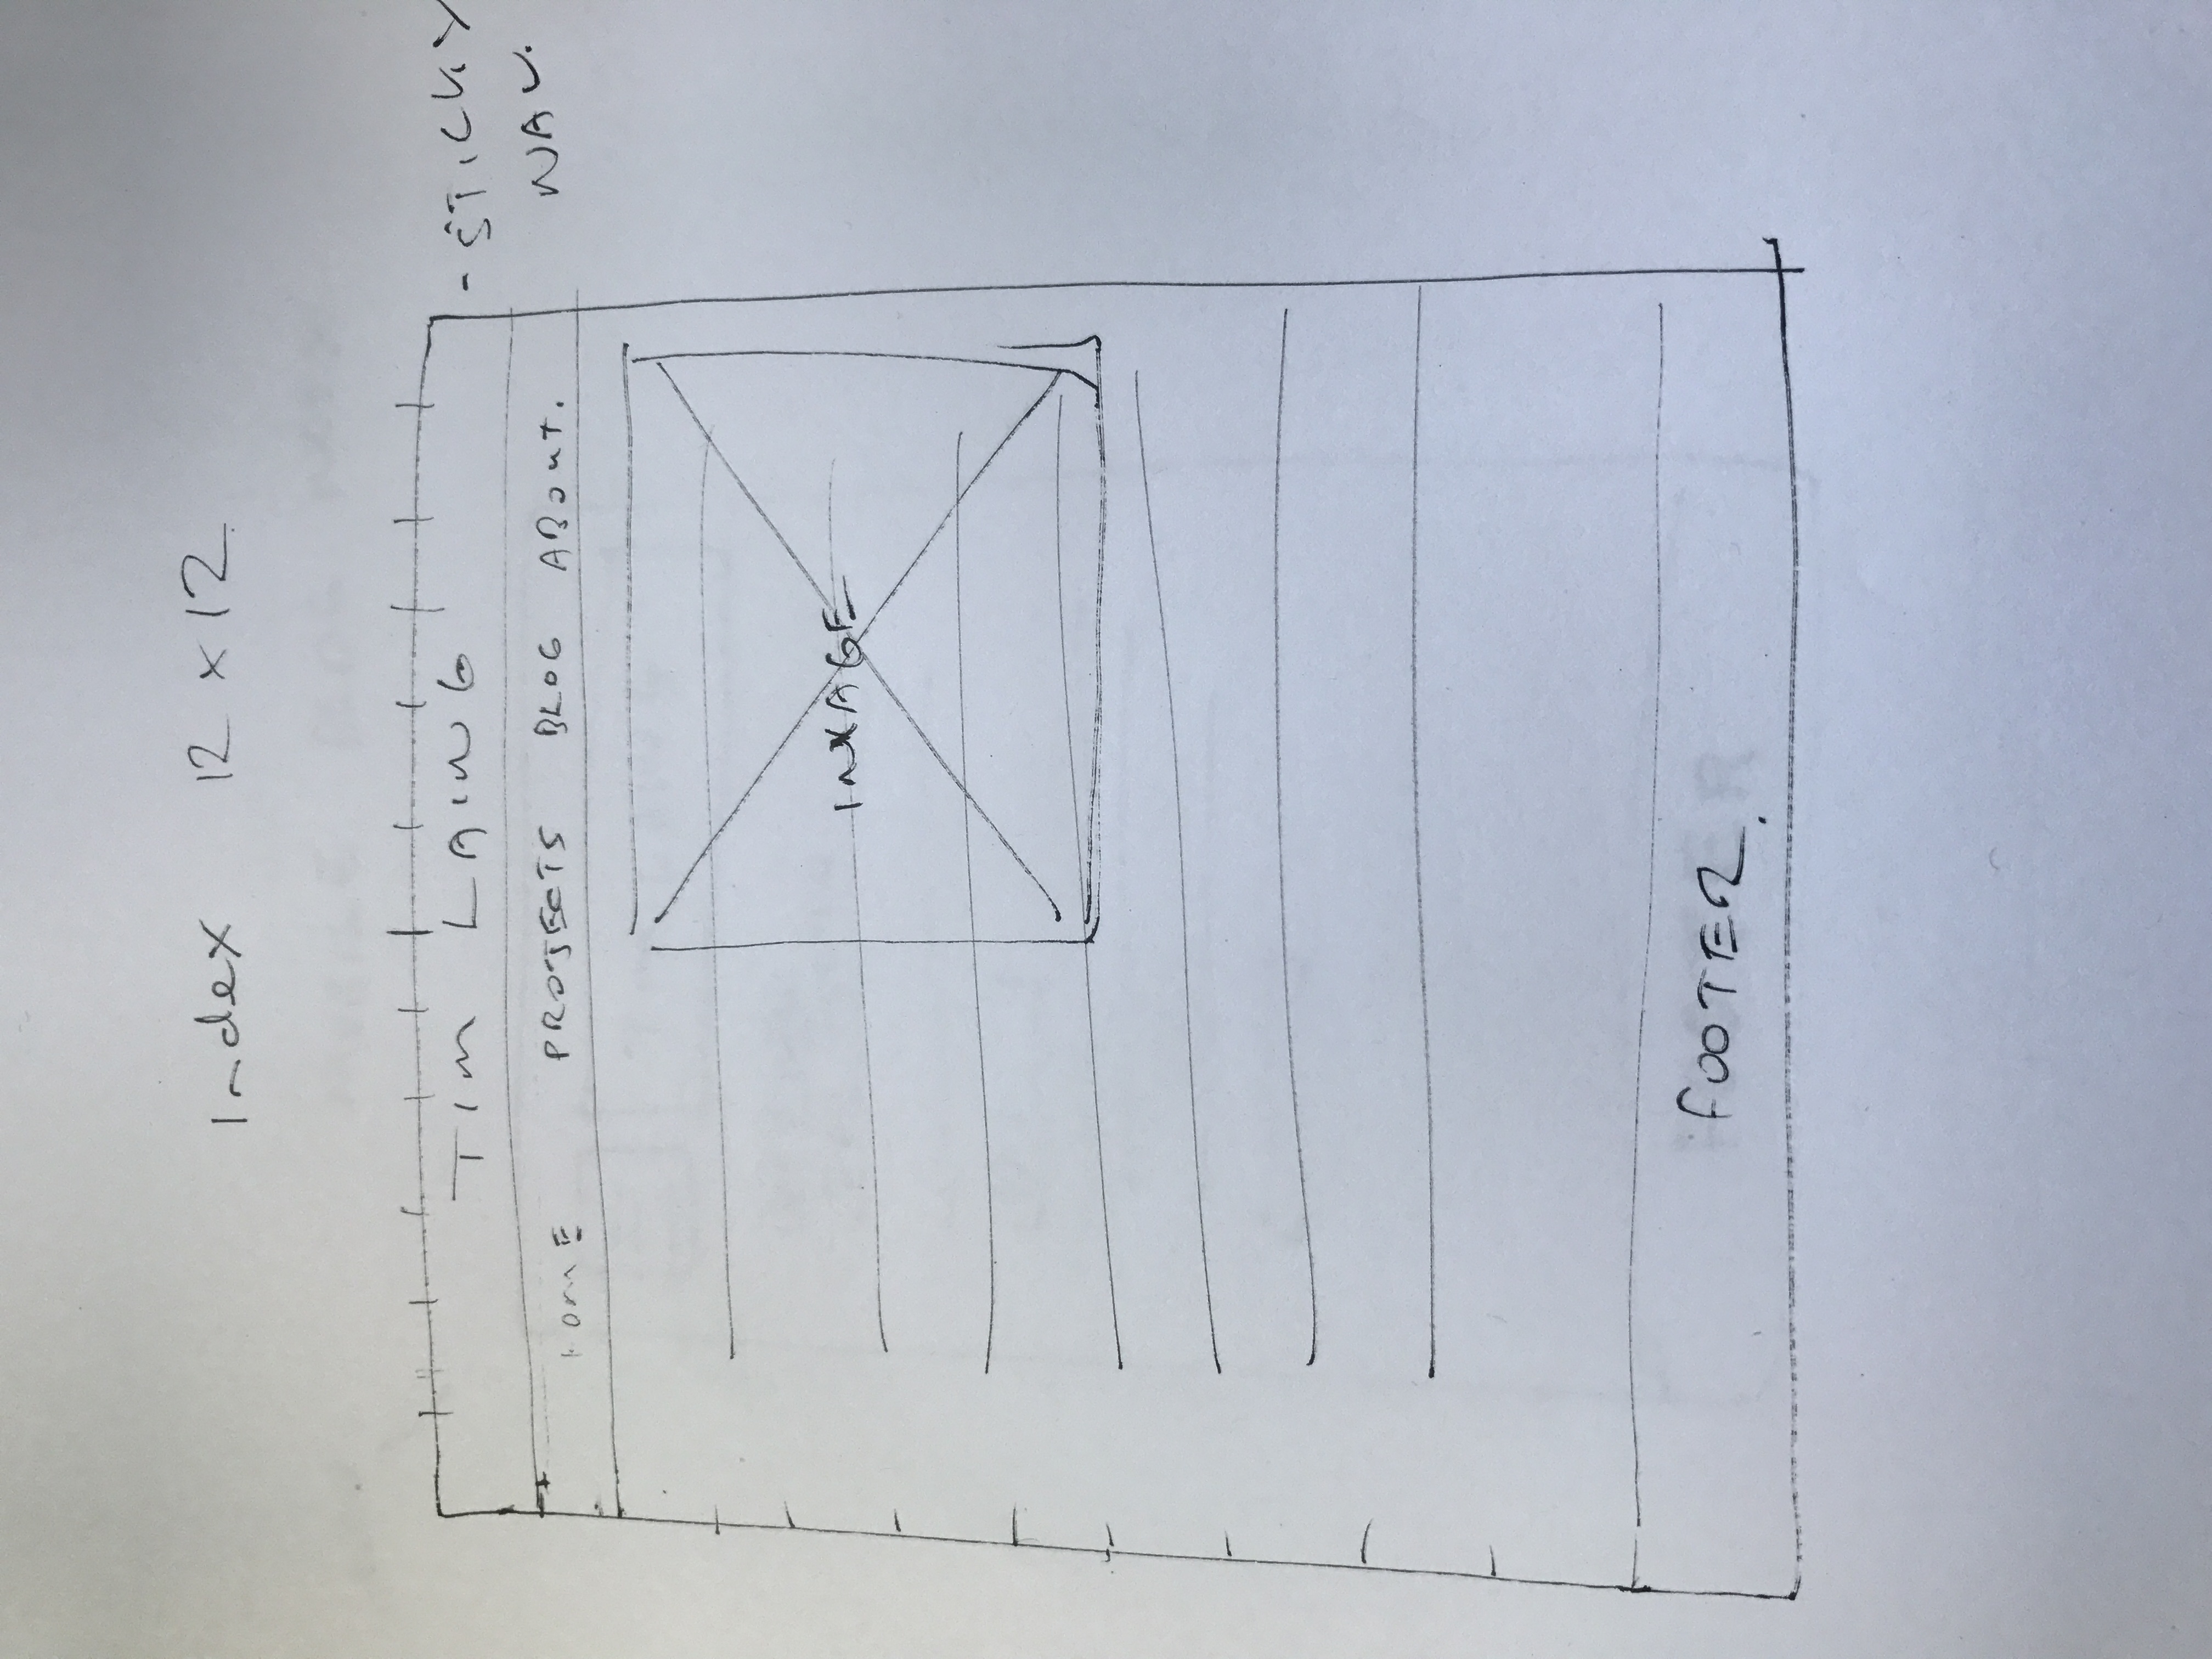 Index 12 x 12
TIM LAING
- STICKY NAV.
HOME PROJECTS BLOG ABOUT.
IMAGE
FOOTER.